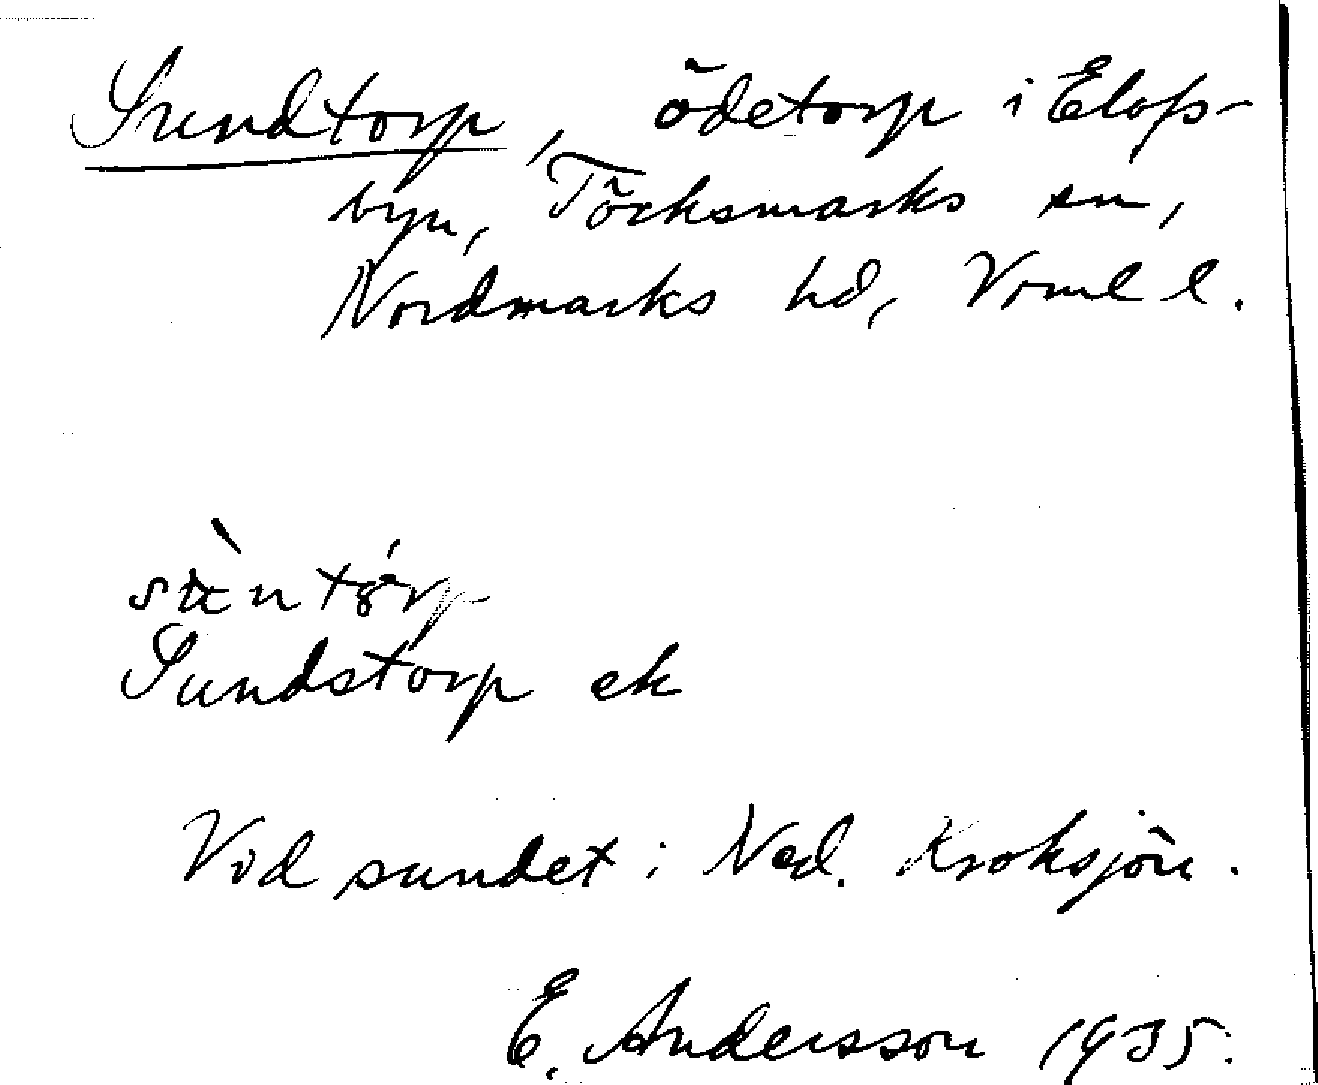 Sundtorp, ödetorp i Elofs-
byn, Töcksmarks sn,
Nordmarks hd, Vrml l.
Sundstorp ek
Vid sundet i Ned. Kroksjön.
E. Andersson 1935.